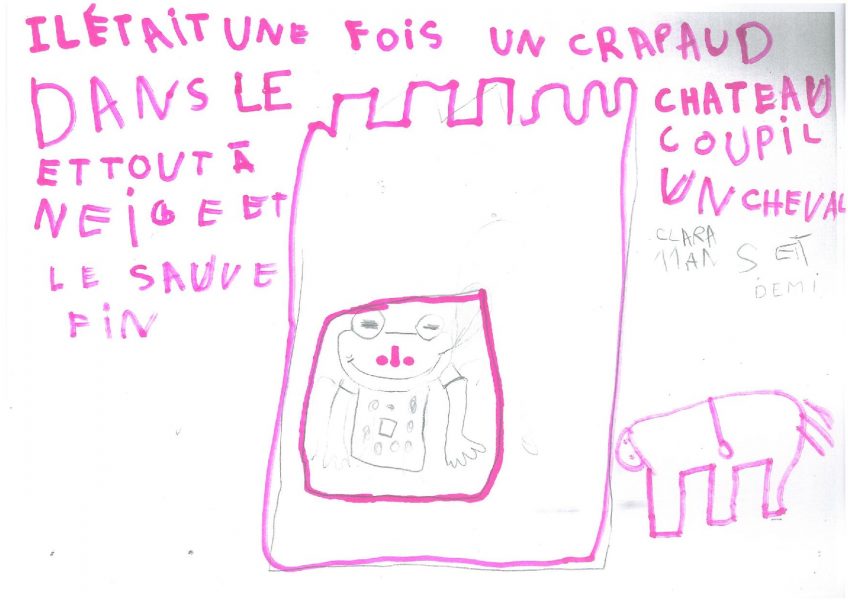 IL ÉTAIT UNE FOIS UN CRAPAUD
DANS LE CHATEAU
ET TOUT À COUP IL
NEIGE ET UN CHEVAL
LE SAUVE
FIN
CLARA
11 AN S ET
DEMI